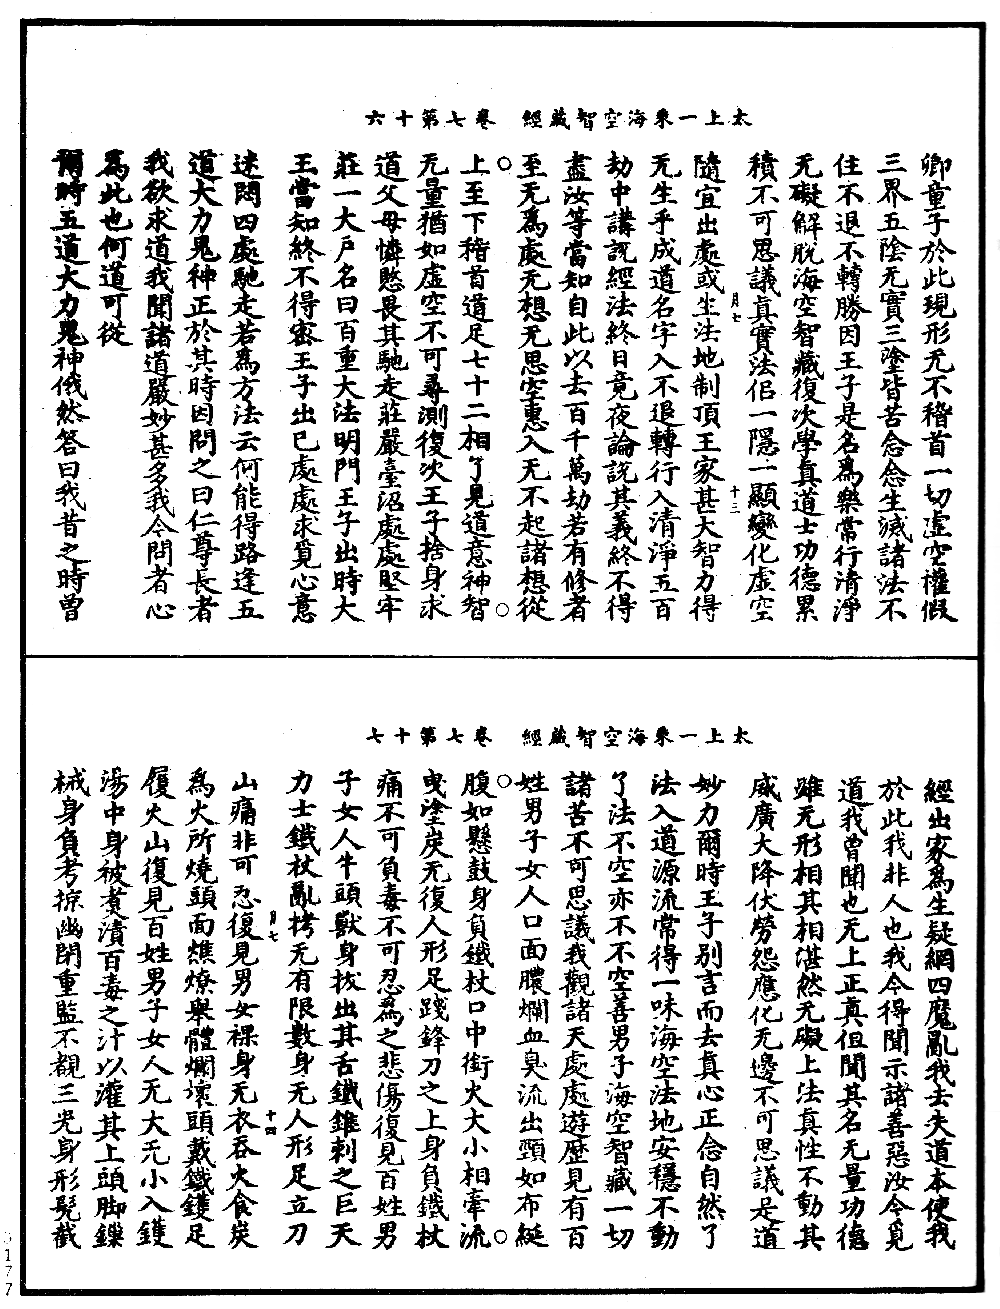 太上一乘海空智藏經　卷七第十六
卿童子於此現形无不稽首一切虛空權假
三界五陰无實三塗皆苦念念生滅諸法不
住不退不轉勝因王子是名為樂常行清淨
无礙解脫海空智藏復次學真道士功德累
積不可思議真實法侶一隱一顯變化虛空
月七　十三
隨宜出處或生法地制頂王家甚大智力得
无生乎成道名字入不退轉行入清淨五百
劫中講說經法終日竟夜論說其義終不得
盡汝等當知自此以去百千萬劫若有修者
至无為處无想无思空惠入无不起諸想從
上至下稽首道足七十二相了見道意神智
无量猶如虛空不可尋測復次王子捨身求
道父母憐愍畏其馳走莊嚴臺沼處處堅牢
莊一大戶名曰百重大法明門王子出時大
王當知終不得密王子出已處處求覓心意
迷悶四處馳走若為方法云何能得路逢五
道大力鬼神正於其時因問之曰仁尊長者
我欲求道我聞諸道嚴妙甚多我今問者心
為此也何道可從
爾時五道大力鬼神俄然答曰我昔之時曾
太上一乘海空智藏經　卷七第十七
經出家為生疑網四魔亂我去失道本使我
於此我非人也我今得聞示諸善惡汝今覓
道我曾聞也无上正真但聞其名无量功德
雖无形相其相湛然无礙上法真性不動其
威廣大降伏勞怨應化无邊不可思議是道
妙力爾時王子別言而去真心正念自然了
法入道源流常得一味海空法地安穩不動
了法不空亦不不空善男子海空智藏一切
諸苦不可思議我觀諸天處處遊歷見有百
姓男子女人口面膿爛血臭流出頸如布綖
腹如懸鼓身負鐵杖口中銜火大小相牽流
曳塗炭无復人形足踐鋒刀之上身負鐵杖
痛不可負毒不可忍為之悲傷復見百姓男
子女人牛頭獸身拔出其舌鐵錐刺之巨天
力士鐵杖亂拷无有限數身无人形足立刀
月七　十四
山痛非可忍復見男女裸身无衣吞火食炭
為火所燒頭面燋燎舉體爛壞頭戴鐵鑊足
履火山復見百姓男子女人无大无小入鑊
湯中身被煑漬百毒之汁以灌其上頭腳鏁
械身負考掠幽閉重監不覩三光身形髡截